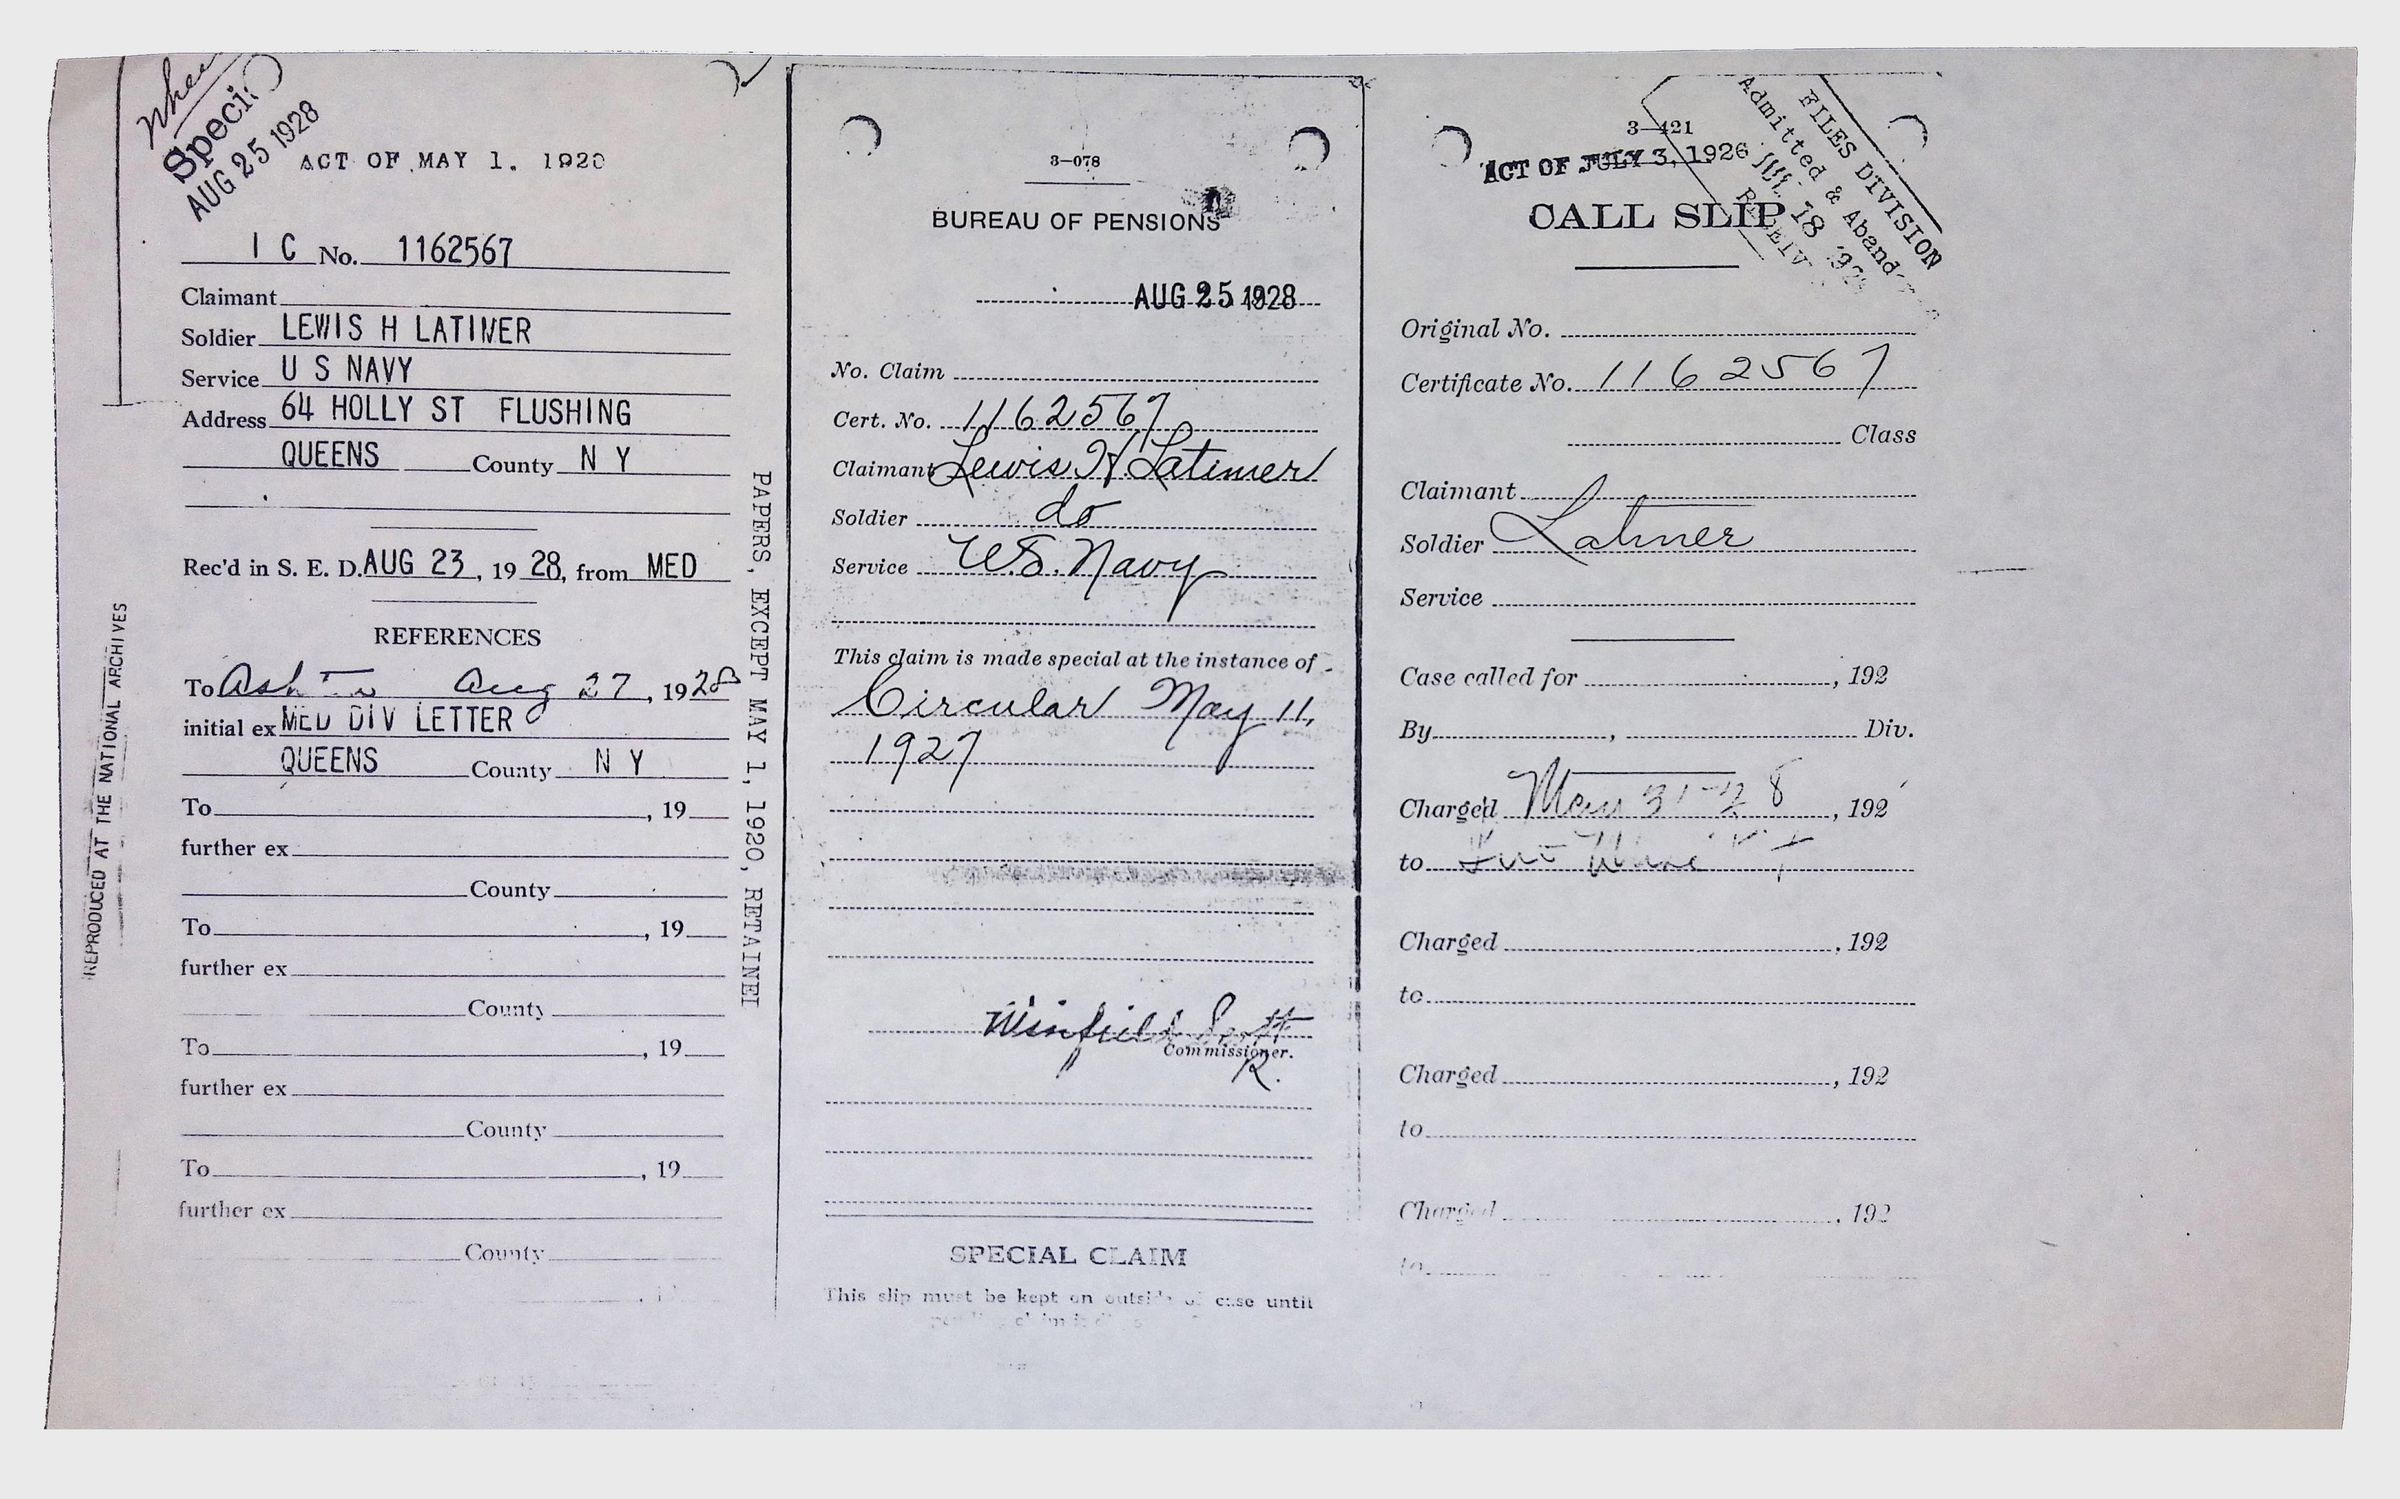 Speci
AUG 25 1928
ACT OF MAY 1, 1920
I C No. 1162567
Claimant
Soldier LEWIS H LATIMER
Service U S NAVY
Address 64 HOLLY ST FLUSHING
QUEENS County N Y
Rec'd in S. E. D. AUG 23, 19 28, from MED
REFERENCES
To Aug 27, 1928
initial ex MED DIV LETTER
QUEENS County N Y
To , 19
further ex
County
To , 19
further ex
County
To , 19
further ex
County
To , 19
further ex
County
REPRODUCED AT THE NATIONAL ARCHIVES
PAPERS, EXCEPT MAY 1, 1920, RETAINE
3-078
BUREAU OF PENSIONS
AUG 25 1928
No. Claim
Cert. No. 1162567
Claimant Lewis H. Latimer
Soldier do
Service U.S. Navy
This claim is made special at the instance of
Circular May 11,
1927
Winfield Scott
Commissioner.
R.
SPECIAL CLAIM
This slip must be kept on outside of case until
3-421
ACT OF JULY 3, 1926
CALL SLIP
FILES DIVISION
Admitted & Aband
18
Original No.
Certificate No. 1162567
Class
Claimant
Soldier Latimer
Service
Case called for , 192
By , Div.
Charged May 31-28, 192
to
Charged , 192
to
Charged , 192
to
Charged , 192
to